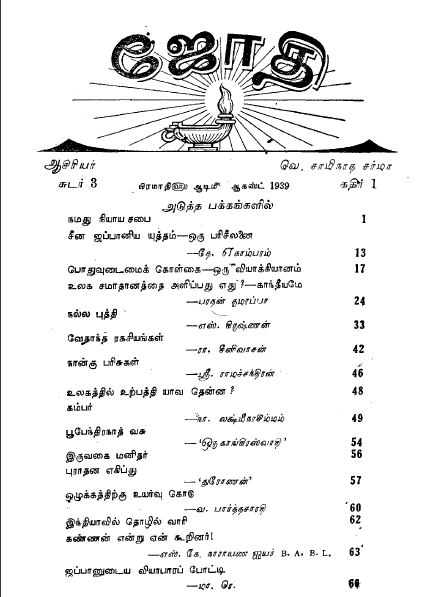 ஜோதி
ஆசிரியர் வெ. சாமிநாத சர்மா
சுடர் 3 பிரமாதி௵ ஆடி௴ ஆகஸ்ட் 1939 கதிர் 1
அடுத்த பக்கங்களில்
நமது நியாய சபை 1
சீன ஜப்பானிய யுத்தம்—ஒரு பரிசீலனை
—தே. ஏகாம்பரம் 13
பொதுவுடைமைக் கொள்கை—ஒரு வியாக்கியானம் 17
உலக சமாதானத்தை அளிப்பது எது?—காந்தீயமே
—பரதன் குமரப்பா 24
நல்ல புத்தி
—எஸ். கிருஷ்ணன் 33
வேதாந்த ரகசியங்கள்
—ரா. சீனிவாசன் 42
நான்கு பரிசுகள்
—ஸ்ரீ. ராமச்சந்திரன் 46
உலகத்தில் உற்பத்தி யாவ தென்ன? 48
கம்பர்
—நா. லக்ஷ்மீநரசிம்மம் 49
பூபேந்திரநாத் வசு
—'ஒரு காங்கிரஸ்வாதி' 54
இருவகை மனிதர் 56
புராதன எகிப்து
—'துரோணன்' 57
ஒழுக்கத்திற்கு உயர்வு கொடு
—வ. பார்த்தசாரதி 60
இந்தியாவில் தொழில் வாரி 62
கண்ணன் என்று ஏன் கூறினர்!
—எஸ். கே. நாராயண ஐயர் B. A. B. L. 63
ஜப்பானுடைய வியாபாரப் போட்டி
—மா. செ. 64